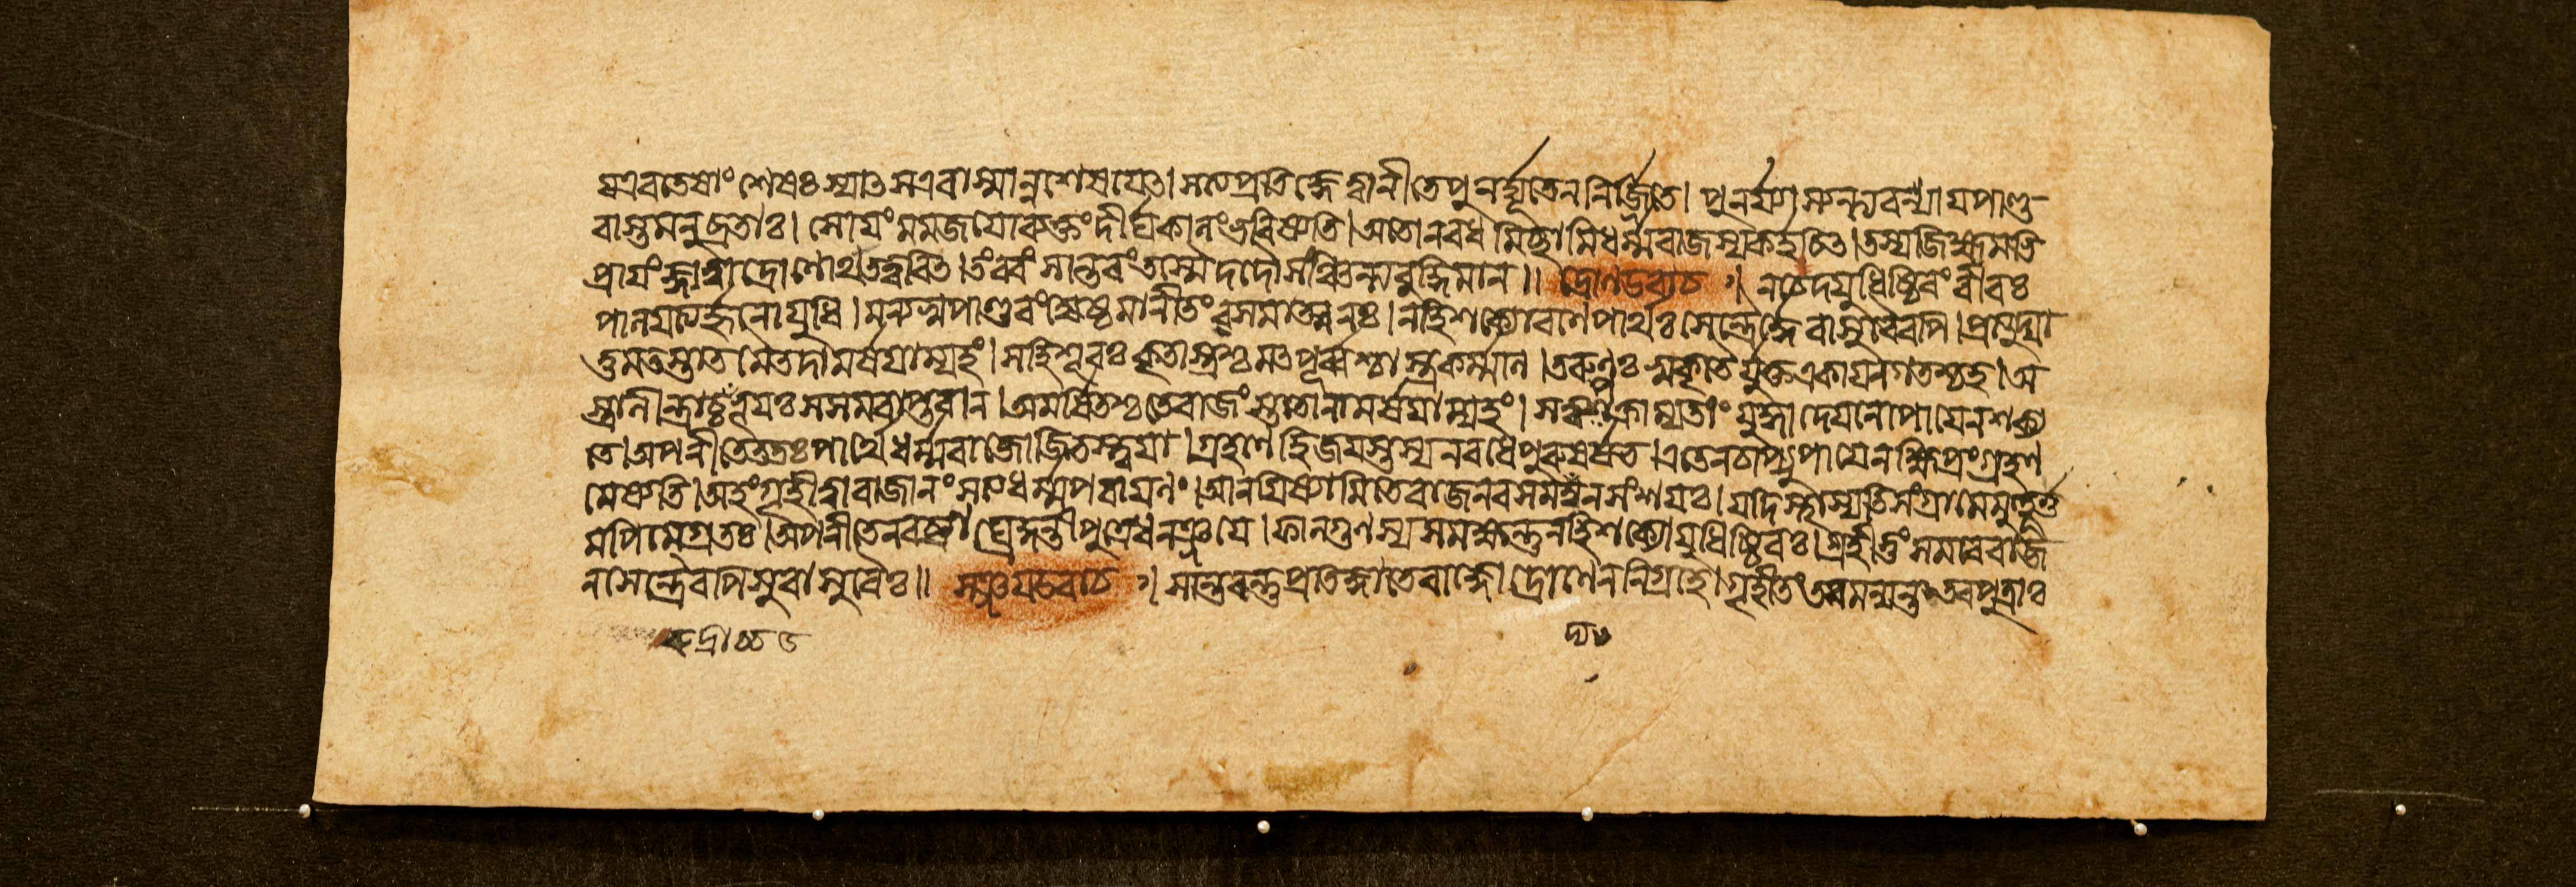 য এব তেষাং শেষঃ স্যাৎ স এবাস্মান্নশেষয়েৎ। সত্যপ্রতিজ্ঞে ত্বানীতে পুনর্দ্যূতেন নির্জিতে। পুনর্যাস্যন্ত্যরণ্যায় পাণ্ড-
বাস্তমনুব্রতাঃ। সোয়ং মম জয়ো ব্যক্তং দীর্ঘকালং ভবিষ্যতি। অতো ন বধমিচ্ছামি ধর্ম্মরাজস্য কর্হিচিৎ। তস্য জিহ্মমভি
প্রায়ং জ্ঞাত্বা দ্রোণোর্থতত্ত্ববিৎ। তং বরং সান্তরং তস্মৈ দদৌ সঞ্চিন্ত্য বুদ্ধিমান্॥ দ্রোণ উবাচ। ন চেদ্যুধিষ্ঠিরং বীরঃ
পালয়ত্যর্জ্জুনো যুধি। মন্যস্ব পাণ্ডবং জ্যেষ্ঠমানীতং বশমাত্মনঃ। ন হি শক্যো রণে পার্থঃ সেন্দ্রৈর্দেবাসুরৈরপি। প্রত্যুদ্যা
তুমতস্তাত নৈতদামর্ষয়াম্যহং। স হি শূরঃ কৃতাস্ত্রশ্চ মৎপূর্ব্বশ্চাস্ত্রকর্ম্মণি। তরুণঃ সুকৃতৈর্যুক্ত একায়নগতশ্চ হ। অ
স্ত্রাণীন্দ্রাচ্চ ভূয়ঃ স সমবাপ্তবান্। অমর্ষিতশ্চ তে রাজংস্ততো নামর্ষয়াম্যহং। স চাপক্রাম্যতাং যুদ্ধাদ্যেনোপায়েন শক্য
তে। অপনীতে ততঃ পার্থে ধর্ম্মরাজো জিতস্ত্বয়া। গ্রহণে হি জয়স্তস্য ন বধে পুরুষর্ষভ। এতেন চাপ্যুপায়েন ক্ষিপ্রং গ্রহণ
মেষ্যতি। অহং গৃহীত্বা রাজানং সত্যধর্ম্মপরায়ণং। আনয়িষ্যামি তে রাজন্ বশমদ্য ন সংশয়ঃ। যদি স্থাস্যতি সংগ্রামে মুহূর্ত্ত
মপি মেগ্রতঃ। অপনীতে নরব্যাঘ্রে কুন্তীপুত্রে ধনঞ্জয়ে। ফাল্গুণস্য সমক্ষন্তু ন হি শক্যো যুধিষ্ঠিরঃ। গ্রহীতুং সমরে রাজ
ন্ সেন্দ্রৈরপি সুরাসুরৈঃ॥ সঞ্জয় উবাচ। সান্তরন্তু প্রতিজ্ঞাতে রাজ্ঞো দ্রোণেন নিগ্রহে। গৃহীতং তমমন্যন্ত তব পুত্রাঃ